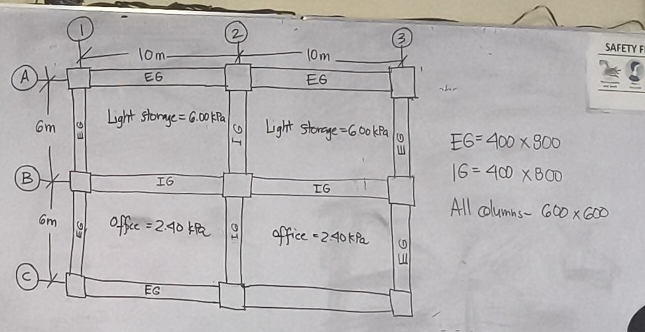 1 2 3
10m 10m
A EG EG
6m EG Light storage = 6.00 kPa IG Light storage = 6.00 kPa EG
EG = 400 x 800
IG = 400 x 800
B IG IG
All columns - 600 x 600
6m EG Office = 2.40 kPa IG office = 2.40 kPa EG
C EG
SAFETY F